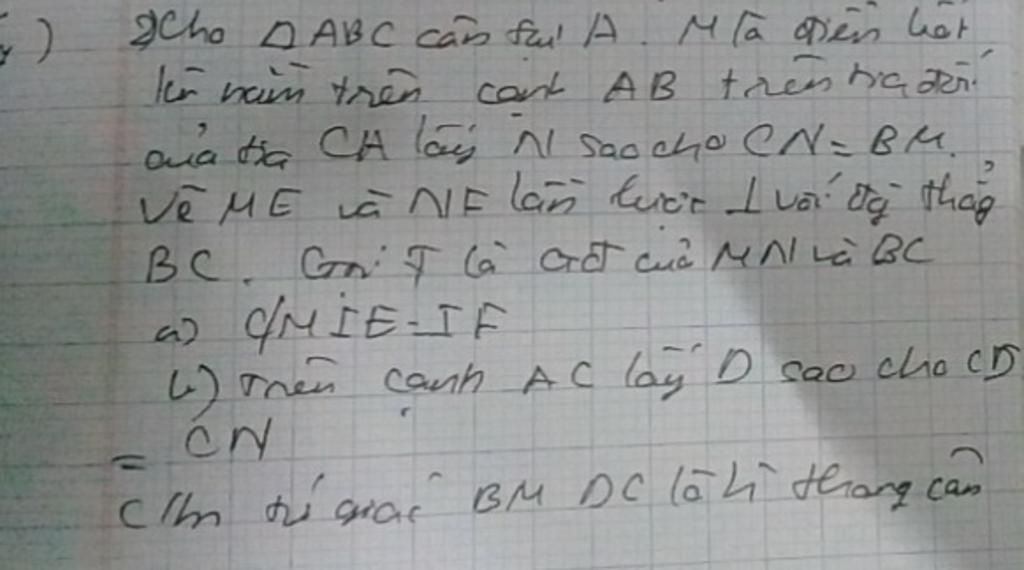 ) Cho Δ ABC cân tại A. M là điểm bất
kì nằm trên cạnh AB trên tia đối
của tia CA lấy N sao cho CN = BM.
Vẽ ME và NF lần lượt ⊥ với đg thẳg
BC. Gọi I là GĐ của MN và BC
a) C/M IE = IF
b) Trên cạnh AC lấy D sao cho CD
= CN
C/m tứ giác BMDC là h thang cân